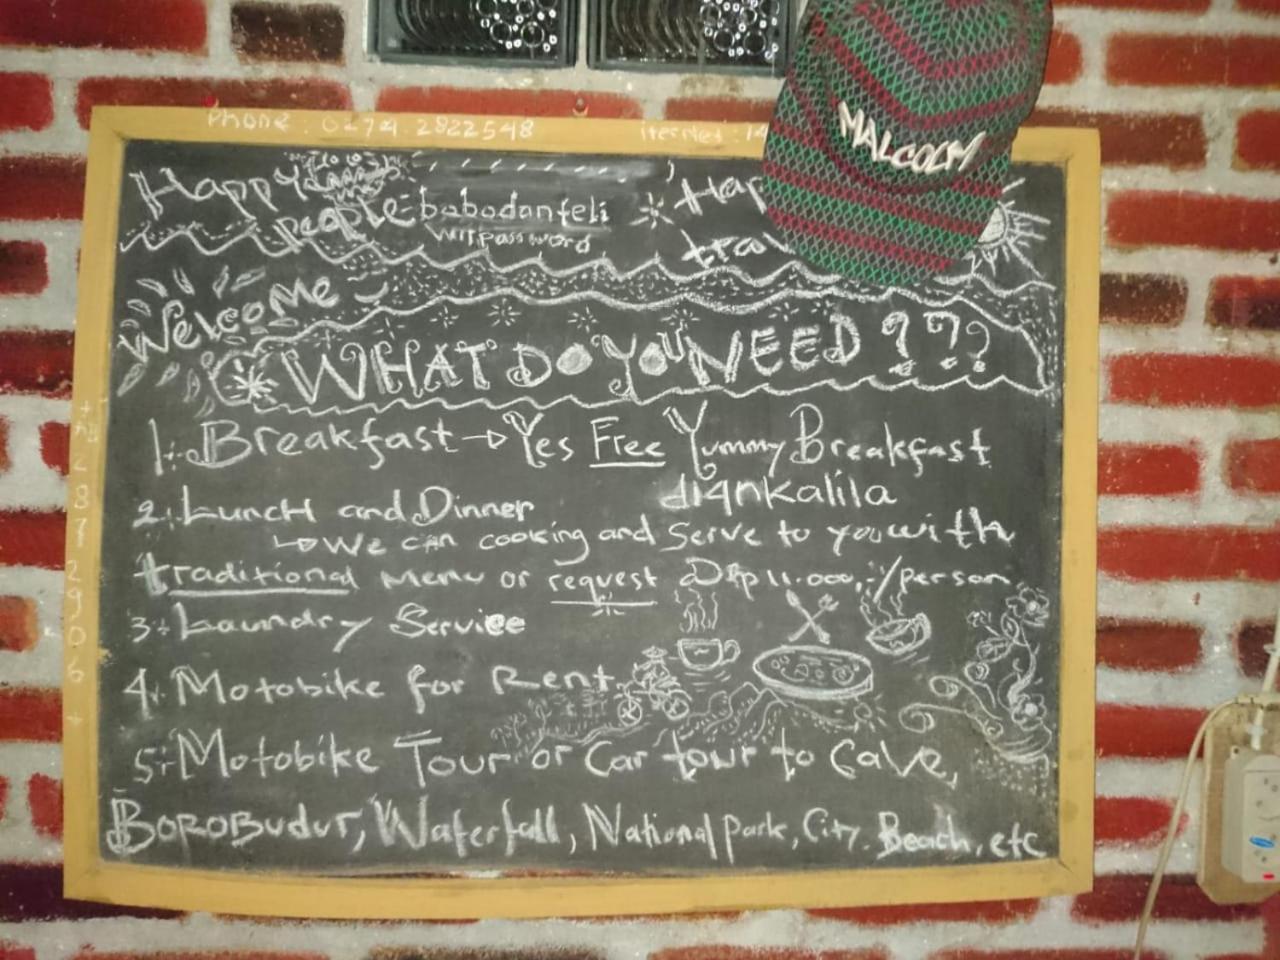 Phone : 0274.2822548
MALCOLM
Happy
people
bobodanfeli
wifi password
Welcome
WHAT DO YOU NEED ???
1. Breakfast → Yes Free Yummy Breakfast
diankalila
2. Lunch and Dinner
↳ We can cooking and Serve to you with
traditional menu or request Rp 11.000,-/person
3. Laundry Service
4. Motobike for Rent
5. Motobike Tour or Car tour to Cave,
Borobudur, Waterfall, National park, City, Beach, etc